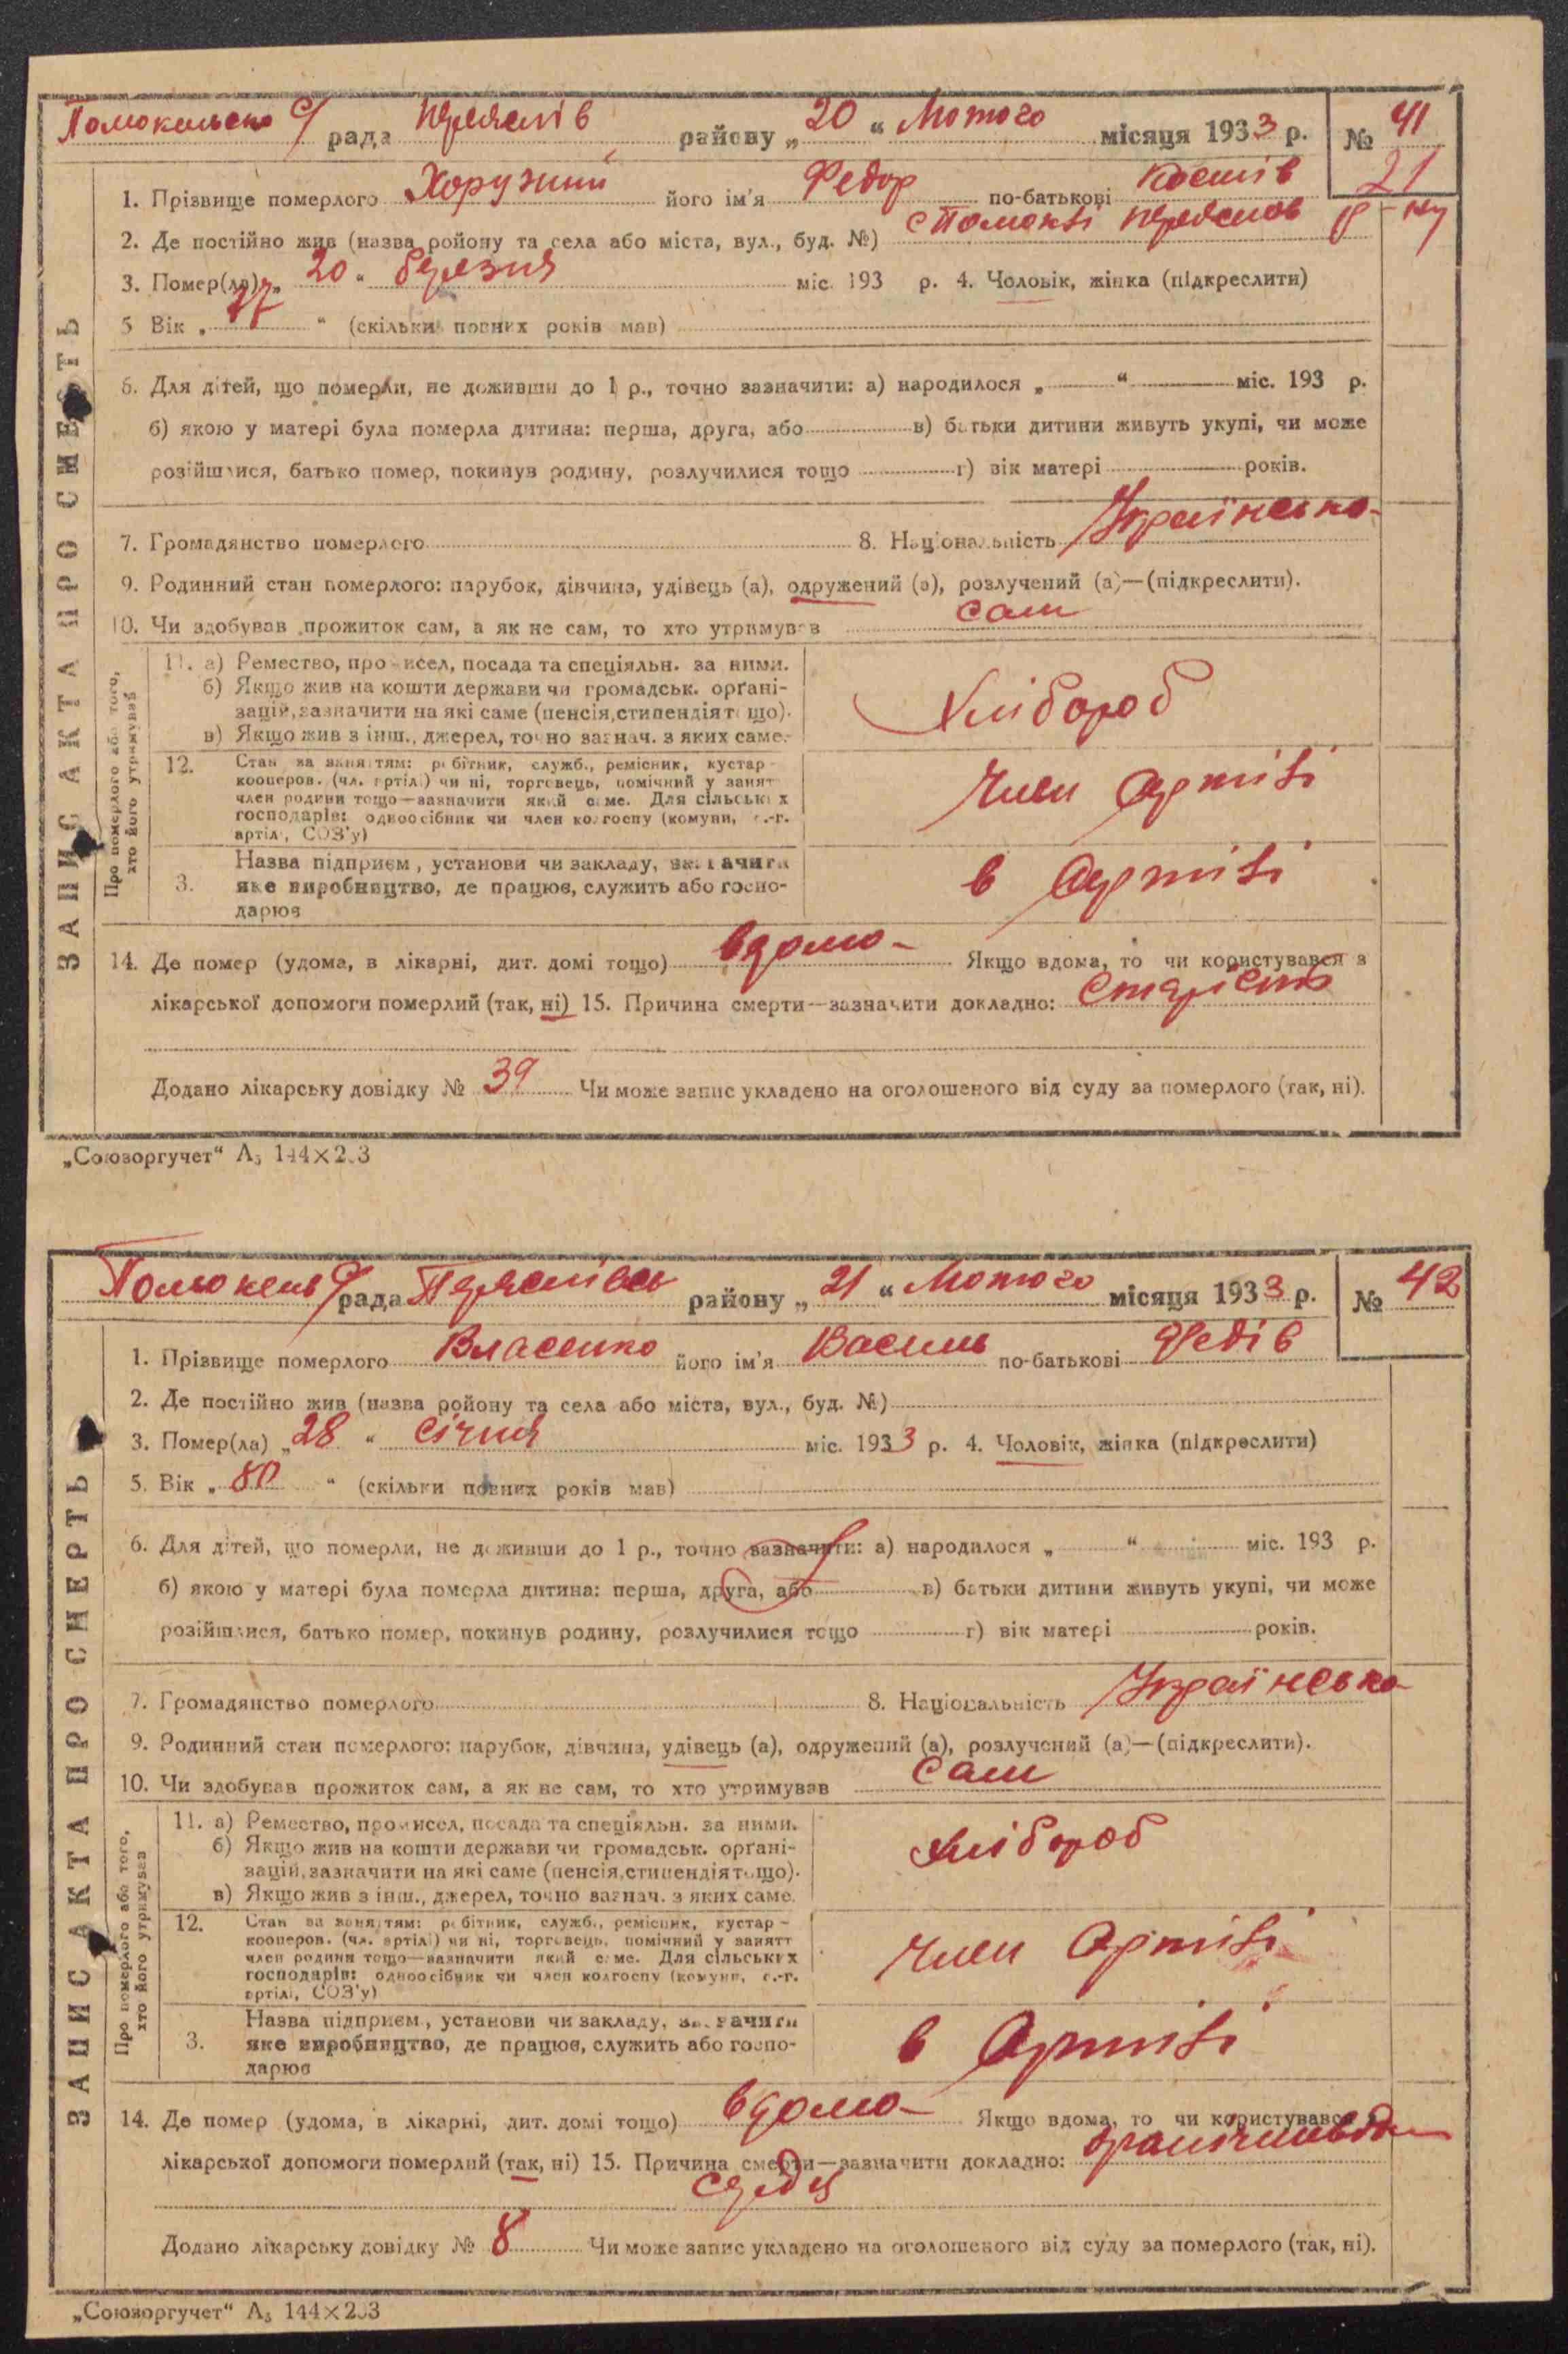 Помокельська с/рада Переяслів району „20“ Лютого місяця 1933 р. № 41
1. Прізвище померлого Хорузий його ім'я Федор по-батькові Костів 21
2. Де постійно жив (назва ройону та села або міста, вул., буд. №)
3. Помер(ла) „20“ березня міс. 193 р. 4. Чоловік, жінка (підкреслити)
5 Вік „77“ (скільки повних років мав)
6. Для дітей, що померли, не доживши до 1 р., точно зазначити: а) народилося „ “ міс. 193 р.
б) якою у матері була померла дитина: перша, друга, або в) батьки дитини живуть укупі, чи може
розійшлися, батько помер, покинув родину, розлучилися тощо г) вік матері років.
7. Громадянство померлого 8. Національність Українська
9. Родинний стан померлого: парубок, дівчина, удівець (а), одружений (а), розлучений (а)—(підкреслити).
10. Чи здобував прожиток сам, а як не сам, то хто утримував сам
ЗАПИС АКТА ПРО СМЕРТЬ
Про померлого або того,
хто його утримував
11. а) Ремество, промисел, посада та спеціяльн. за ними.
б) Якщо жив на кошти держави чи громадськ. орґані-
зацій, зазначити на які саме (пенсія, стипендія тощо).
в) Якщо жив з інш., джерел, точно зазнач. з яких саме.
Хлібороб
12. Стан за заняттям: робітник, служб., ремісник, кустар-
кооперов. (чл. артілі) чи ні, торговець, помічний у занятт
член родини тощо—зазначити який саме. Для сільських
господарів: одноосібник чи член колгоспу (комуни, с.-г.
артілі, СОЗ'у)
Член Артілі
3. Назва підприєм, установи чи закладу, зазначити
яке виробництво, де працює, служить або госпо-
дарює
в Артілі
14. Де помер (удома, в лікарні, дит. домі тощо) вдома Якщо вдома, то чи користувався з
лікарської допомоги померлий (так, ні) 15. Причина смерти—зазначити докладно: Старість
Додано лікарську довідку № 39 Чи може запис укладено на оголошеного від суду за померлого (так, ні).
„Союзоргучет“ А₅ 144×203
Помокель с/рада Переяслівськ району „21“ Лютого місяця 1933 р. № 42
1. Прізвище померлого Власенко його ім'я Василь по-батькові Федів
2. Де постійно жив (назва ройону та села або міста, вул., буд. №)
3. Помер(ла) „28“ Січня міс. 1933 р. 4. Чоловік, жінка (підкреслити)
5. Вік „80“ (скільки повних років мав)
6. Для дітей, що померли, не доживши до 1 р., точно зазначити: а) народилося „ “ міс. 193 р.
б) якою у матері була померла дитина: перша, друга, або в) батьки дитини живуть укупі, чи може
розійшлися, батько помер, покинув родину, розлучилися тощо г) вік матері років.
7. Громадянство померлого 8. Національність Українська
9. Родинний стан померлого: парубок, дівчина, удівець (а), одружений (а), розлучений (а)—(підкреслити).
10. Чи здобував прожиток сам, а як не сам, то хто утримував Сам
ЗАПИС АКТА ПРО СМЕРТЬ
Про померлого або того,
хто його утримував
11. а) Ремество, промисел, посада та спеціяльн. за ними.
б) Якщо жив на кошти держави чи громадськ. орґані-
зацій, зазначити на які саме (пенсія, стипендія тощо).
в) Якщо жив з інш., джерел, точно зазнач. з яких саме.
Хлібороб
12. Стан за заняттям: робітник, служб., ремісник, кустар-
кооперов. (чл. артілі) чи ні, торговець, помічний у занятт
член родини тощо—зазначити який саме. Для сільських
господарів: одноосібник чи член колгоспу (комуни, с.-г.
артілі, СОЗ'у)
Член Артілі
3. Назва підприєм, установи чи закладу, зазначити
яке виробництво, де працює, служить або госпо-
дарює
в Артілі
14. Де помер (удома, в лікарні, дит. домі тощо) вдома Якщо вдома, то чи користувався
лікарської допомоги померлий (так, ні) 15. Причина смерти—зазначити докладно:
серця
Додано лікарську довідку № 8 Чи може запис укладено на оголошеного від суду за померлого (так, ні).
„Союзоргучет“ А₅ 144×203